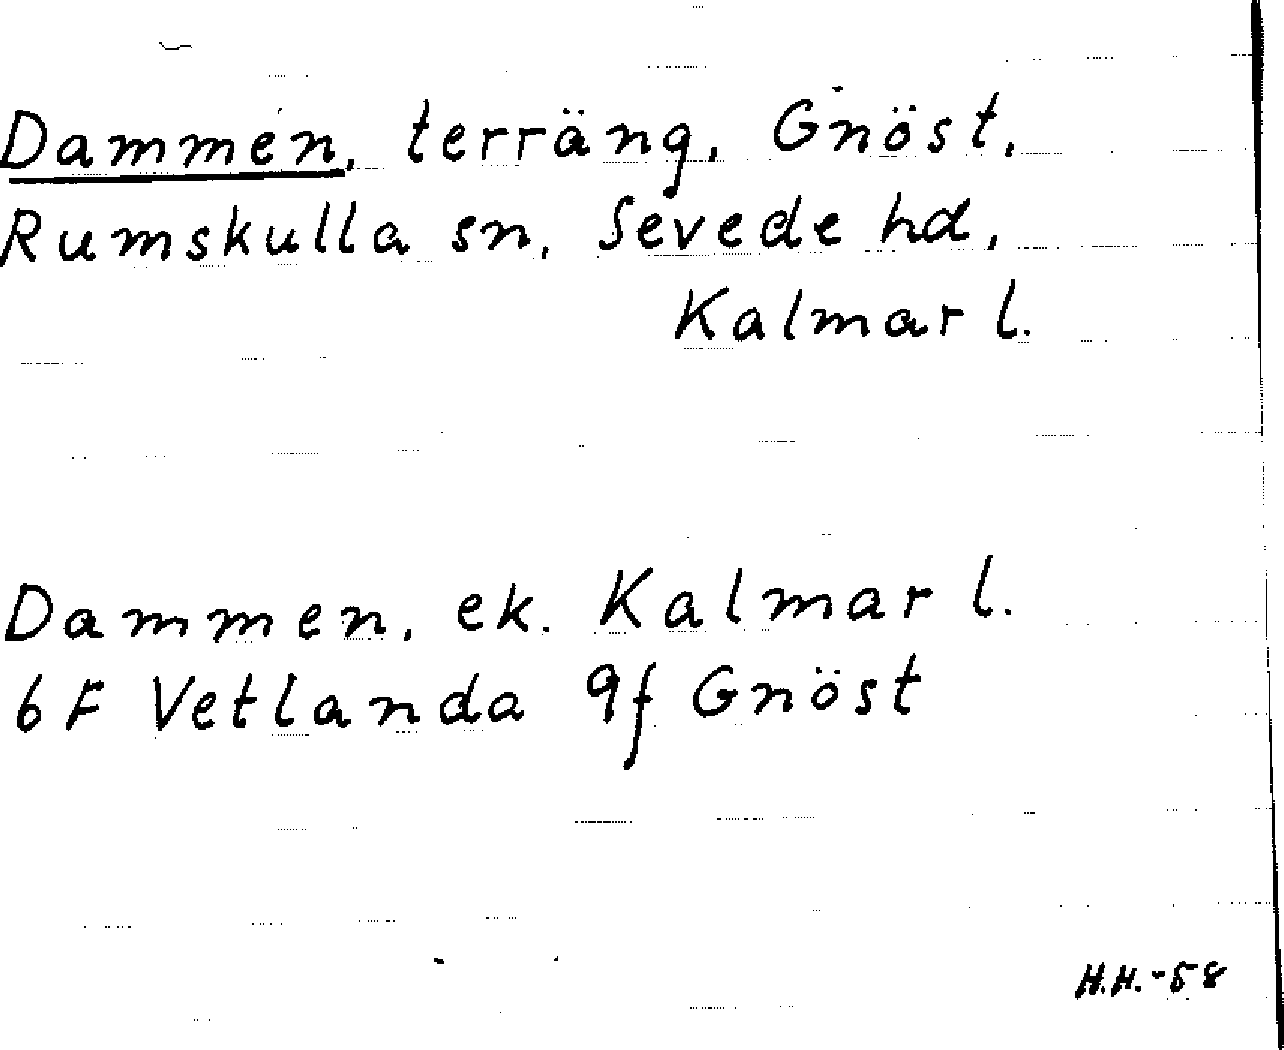 Dammen, terräng, Gnöst,
Rumskulla sn, Sevede hd,
Kalmar l.
Dammen, ek. Kalmar l.
6F Vetlanda 9f Gnöst
H.H.-58